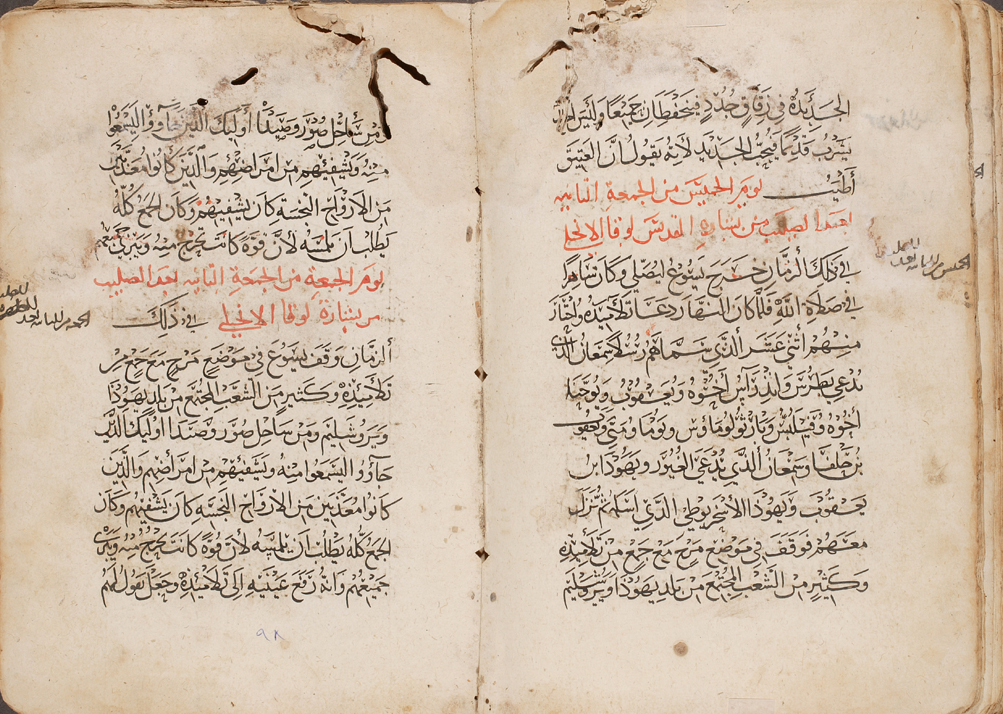 الجديدة في زقاق جدد فينحفظان جميعا وليس احد
يشرب قديما فيحب الجديد لانه يقول ان العتيق
أطيب يوم الخميس من الجمعة الثانية
بعد الصليب من بشارة القديس لوقا الانجيلي
في ذلك الزمان خرج يسوع ليصلي وكان ساهرا
في صلاة الله فلما كان النهار دعا تلاميذه واختار
منهم اثني عشر الذي سماهم رسلا سمعان الذي
يدعى بطرس واندراس أخوه ويعقوب ويوحنا
أخوه وفيلبس وبارثولوماوس وتوما ومتي ويعقوب
بن حلفا وسمعان الذي يدعي الغيور ويهودا ابن
يعقوب ويهوذا الاسخريوطي الذي اسلمه ثم نزل
معهم فوقف في موضع مرج مع جمع من تلاميذه
وكثير من الشعب المجتمع من بلد يهوذا ويروشليم
ومن سواحل صور وصيدا أوليك الذين جآووا ليسمعوا
منه ويشفيهم من امراضهم والذين كانوا معذبين
من الارواح النجسة كان يشفيهم وكان الجمع كله
يطلب ان يلمسه لأن قوة كانت تخرج منه ويبري جميعهم
يوم الجمعة من الجمعة الثانيه بعد الصليب
من بشارة لوقا الانجيلي في ذلك
الزمان وقف يسوع في موضع مرج مع جمع من
تلاميذه وكثير من الشعب المجتمع من بلد يهوذا
ويروشليم ومن ساحل صور وصيدا اوليك الذين
جآووا ليسمعوا منه ويشفيهم من امراضهم والذين
كانوا معذبين من الارواح النجسه كان يشفيهم وكان
الجمع كله يطلب ان يلمسه لأن قوة كانت تخرج منه ويبري
جميعهم وانه رفع عينيه إلى تلاميذه وجعل يقول لهم
٩٨